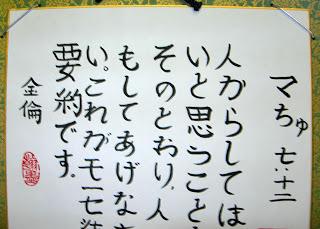 マちゅ 七・十二
人からしてほ
いと思うことを
そのとおり、人
もしてあげな
い。これがモーセ
要約です。
金倫